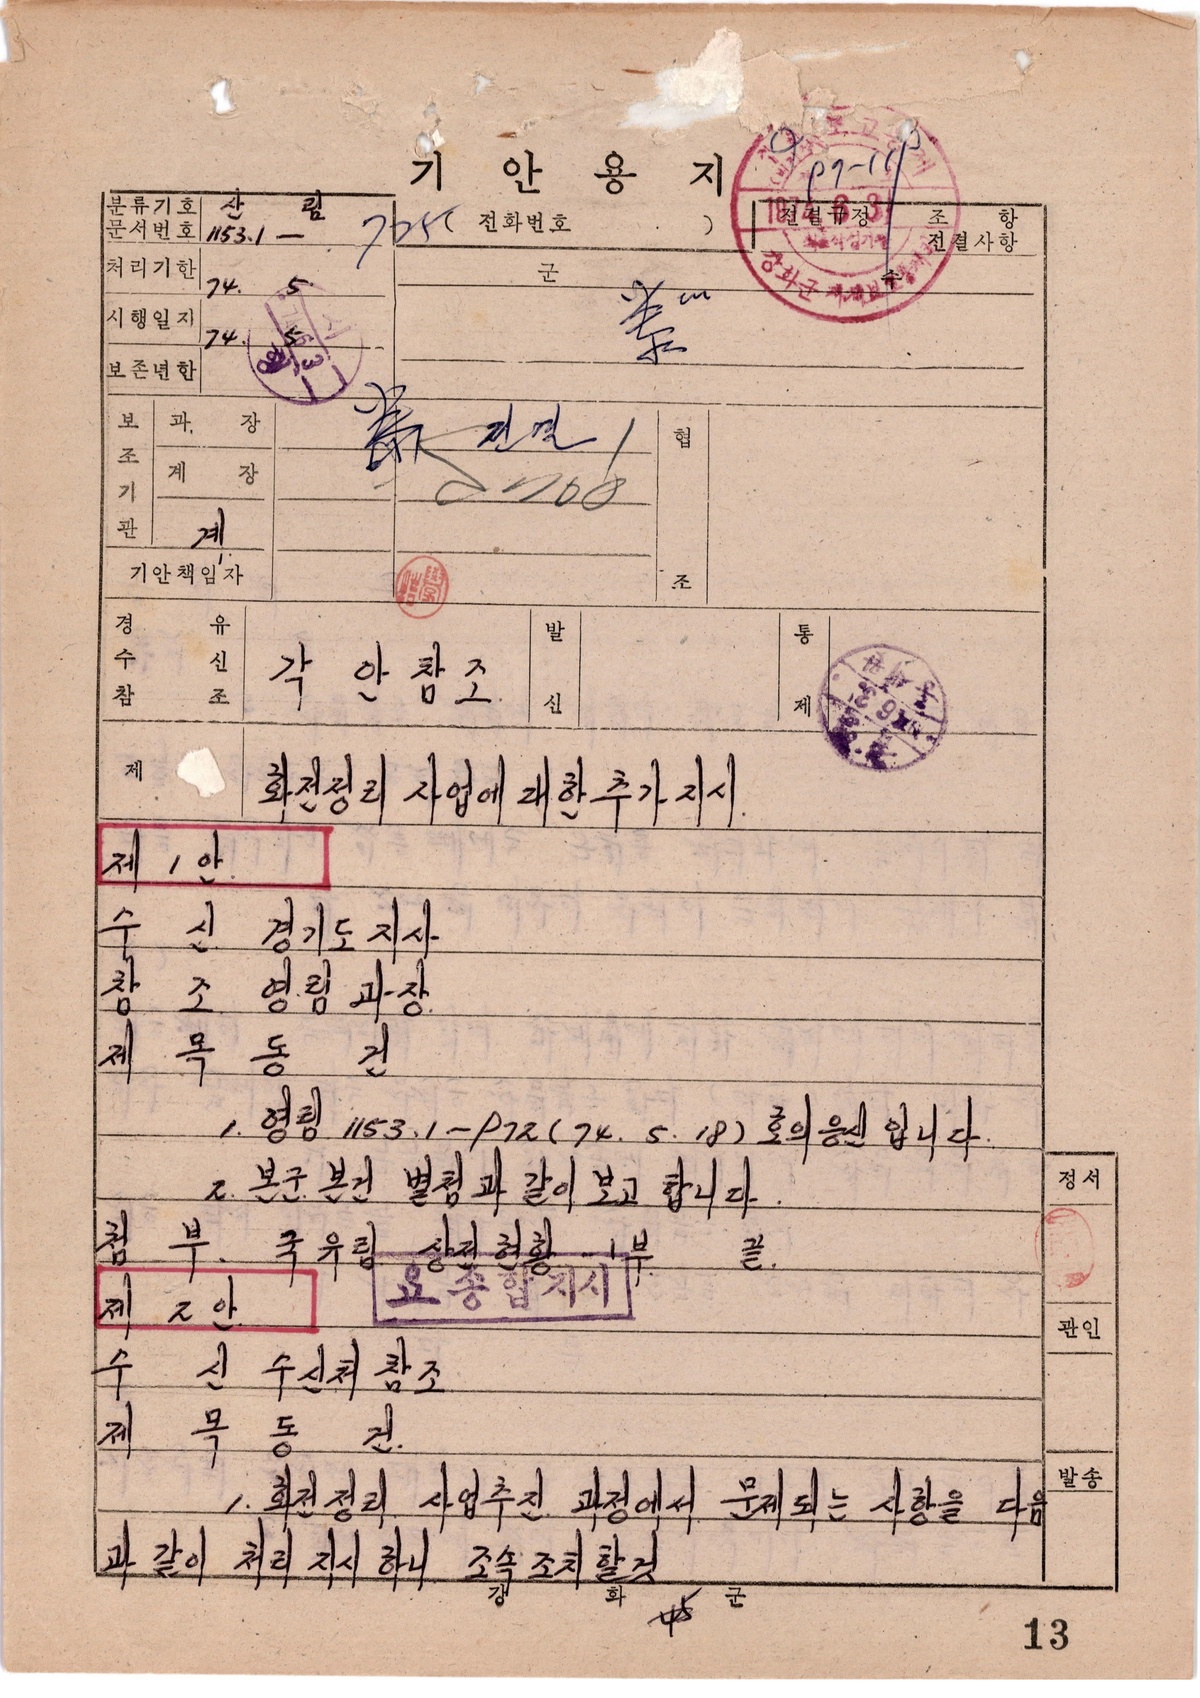 기 안 용 지
분류기호 문서번호 산 림 1153.1 — 705 ( 전화번호 ) 전결규정 조 항 전결사항
처리기한 74. 5. 군 수
시행일자 74. 5.
보존년한
보조기관 과 장 전결 협조
계 장
계
기안책임자
경유 수신 참조 각 안 참조 발신 통제
제 화전정리 사업에 대한 추가 지시.
제 1 안.
수 신 경기도지사
참 조 영림과장
제 목 동 건
1. 영림 1153.1-972(74. 5. 18)호의 응신입니다.
2. 본군 본건 별첨과 같이 보고합니다.
첨 부. 국유림 상전현황 1부. 끝.
요 종합지시
제 2 안.
수 신 수신처 참조
제 목 동 건.
1. 화전정리 사업추진 과정에서 문제되는 사항을 다음
과 같이 처리 지시하니 조속 조치할것
강 화 군
정서
관인
발송
13